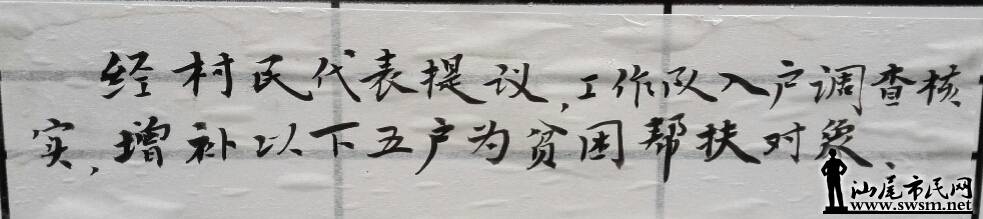 经村民代表提议,工作队入户调查核
实,增补以下五户为贫困帮扶对象、
汕尾市民网
www.swsm.net